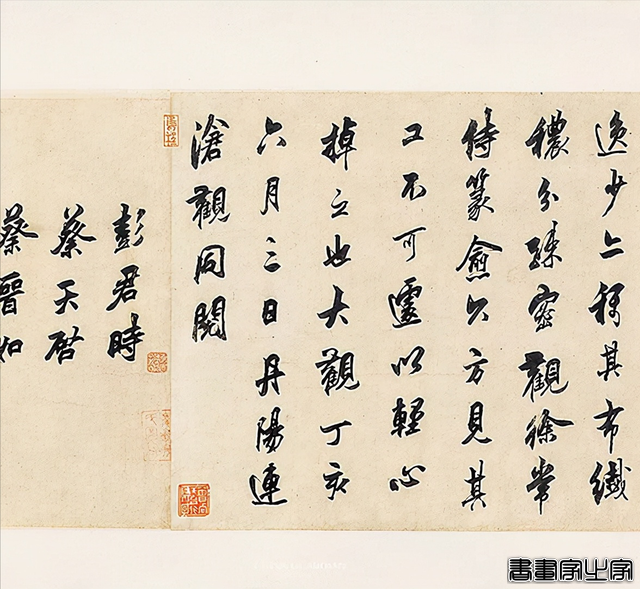 逸少亦稱其布纖
穠分疎密觀徐常
侍篆愈久方見其
工不可遽以輕心
掉之也大觀丁亥
六月三日丹陽連
滄觀同閱
彭君時
蔡天啓
蔡晉如